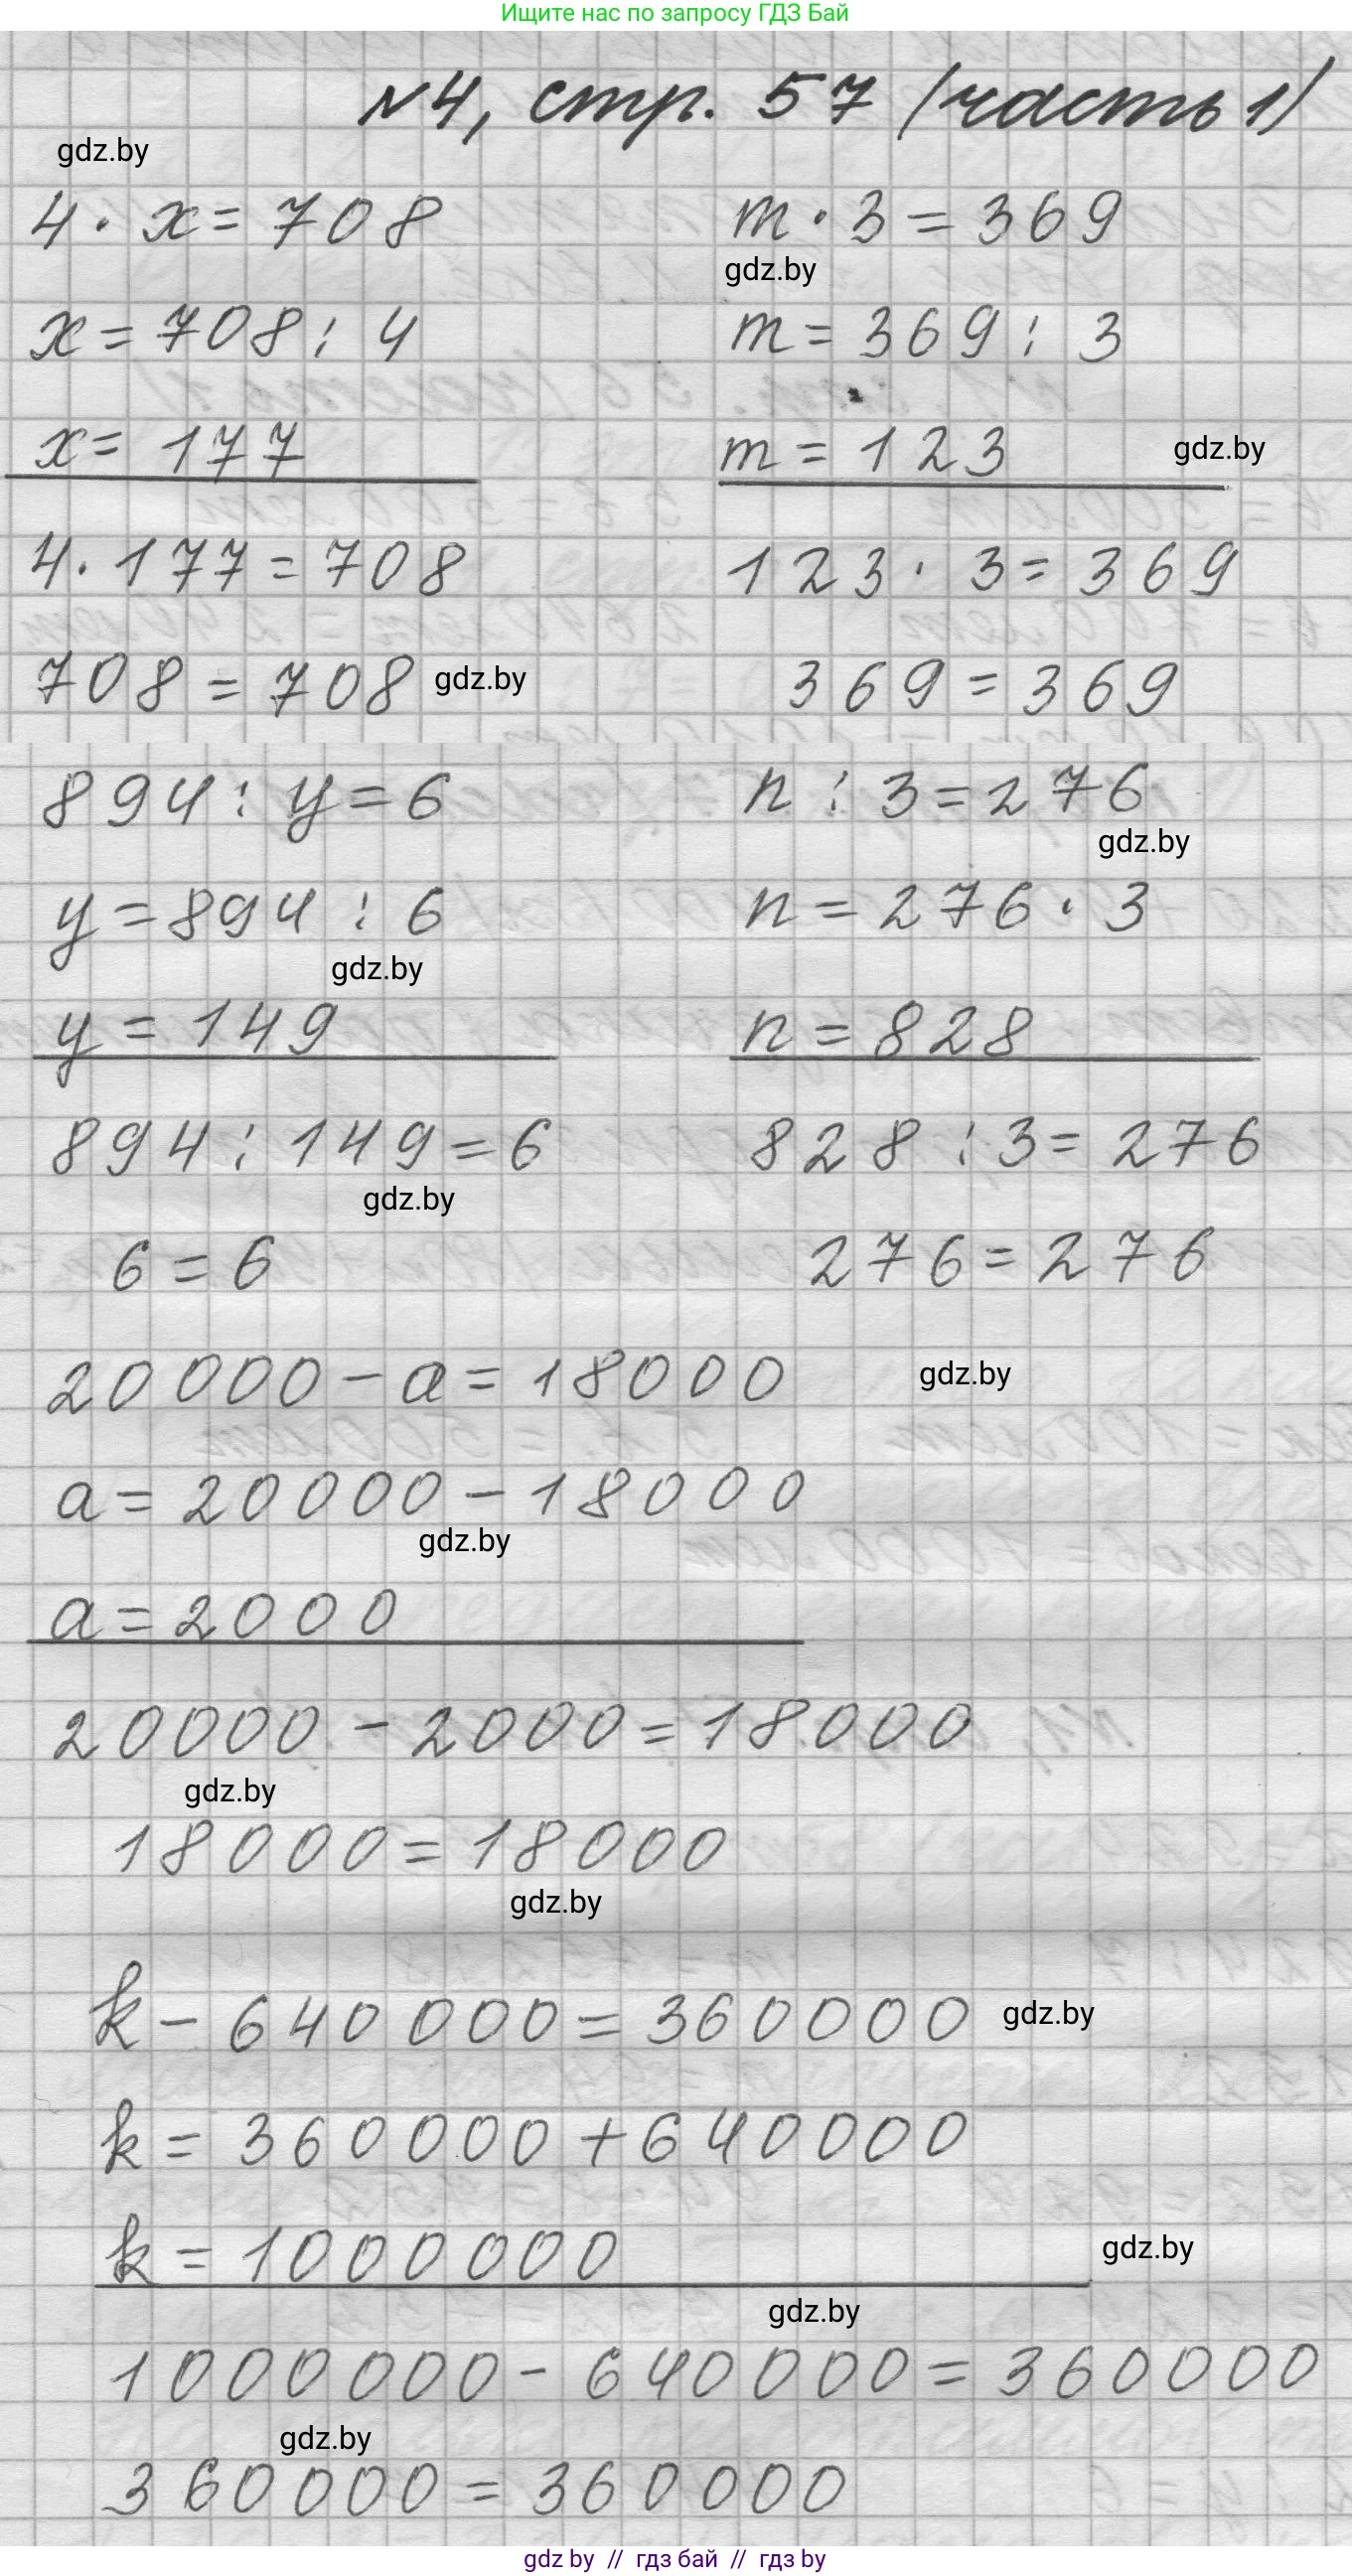 Ищите нас по запросу ГДЗ Бай
№4, стр. 57 (часть 1)
gdz.by
4 · x = 708
x = 708 : 4
x = 177
4 · 177 = 708
708 = 708 gdz.by
m · 3 = 369
gdz.by
m = 369 : 3
m = 123 gdz.by
123 · 3 = 369
369 = 369
894 : y = 6
y = 894 : 6
gdz.by
y = 149
894 : 149 = 6
gdz.by
6 = 6
n : 3 = 276
gdz.by
n = 276 · 3
n = 828
828 : 3 = 276
276 = 276
20000 - a = 18000 gdz.by
a = 20000 - 18000
gdz.by
a = 2000
20000 - 2000 = 18000
gdz.by
18000 = 18000
gdz.by
k - 640000 = 360000 gdz.by
k = 360000 + 640000
k = 1000000 gdz.by
gdz.by
1000000 - 640000 = 360000
gdz.by
360000 = 360000
gdz by // гдз бай // гдз by